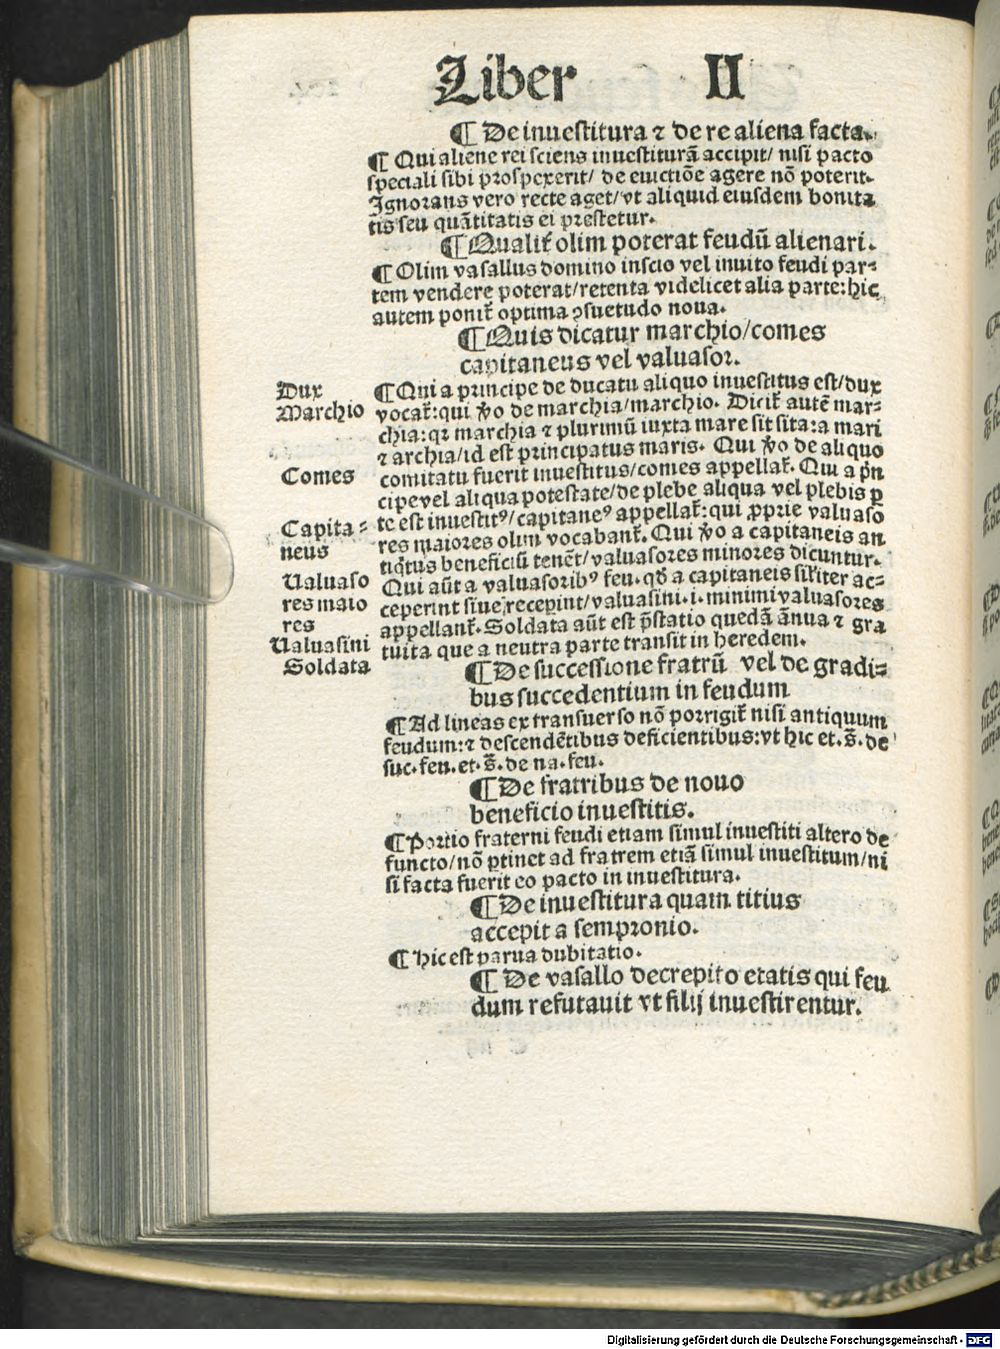 Liber II
¶ De inuestitura ⁊ de re aliena facta.
¶ Qui aliene rei sciens inuestiturā accipit/ nisi pacto
speciali sibi prospexerit/ de euictiōe agere nō poterit.
Ignorans vero recte aget/vt aliquid eiusdem bonita
tis seu quātitatis ei prestetur.
¶ Qualit̃ olim poterat feudū alienari.
¶ Olim vasallus domino inscio vel inuito feudi par⸗
tem vendere poterat/retenta videlicet alia parte:hic
autem ponit̃ optima ꝯsuetudo noua.
¶ Quis dicatur marchio/comes
capitaneus vel valuasor.
Dux
Marchio
¶ Qui a principe de ducatu aliquo inuestitus est/dux
vocat̃:qui ṽo de marchia/marchio. Dicit̃ autē mar⸗
chia:qꝛ marchia ⁊ plurimū iuxta mare sit sita:a mari
⁊ archia/id est principatus maris. Qui ṽo de aliquo
Comes
comitatu fuerit inuestitus/comes appellat̃. Qui a p̄n
cipe vel aliqua potestate/de plebe aliqua vel plebis ꝑ
Capita⸗
neus
te est inuestitꝰ/capitaneꝰ appellat̃:qui ꝓprie valuaso
res maiores olim vocabant̃. Qui ṽo a capitaneis an
tiqͥtus beneficiū tenēt/valuasores minores dicuntur.
Valuaso
res maio
res
Qui aūt a valuasoribꝰ feu. qď a capitaneis sil̃iter ac⸗
ceperint siue recepint/valuasini.i.minimi valuasores
appellant̃. Soldata aūt est p̄statio quedā ānua ⁊ gra
Valuasini
Soldata
tuita que a neutra parte transit in heredem.
¶ De successione fratrū vel de gradi⸗
bus succedentium in feudum
¶ Ad lineas ex transuerso nō porrigit̃ nisi antiquum
feudum:⁊ descendētibus deficientibus:vt hic et.s̄.de
suc.feu.et.s̄.de na.feu.
¶ De fratribus de nouo
beneficio inuestitis.
¶ Portio fraterni feudi etiam simul inuestiti altero de
functo/nō ꝑtinet ad fratrem etiā simul inuestitum/ni
si facta fuerit eo pacto in inuestitura.
¶ De inuestitura quam titius
accepit a sempronio.
¶ Hic est parua dubitatio.
¶ De vasallo decrepito etatis qui feu
dum refutauit vt filij inuestirentur.
Digitalisierung gefördert durch die Deutsche Forschungsgemeinschaft - DFG